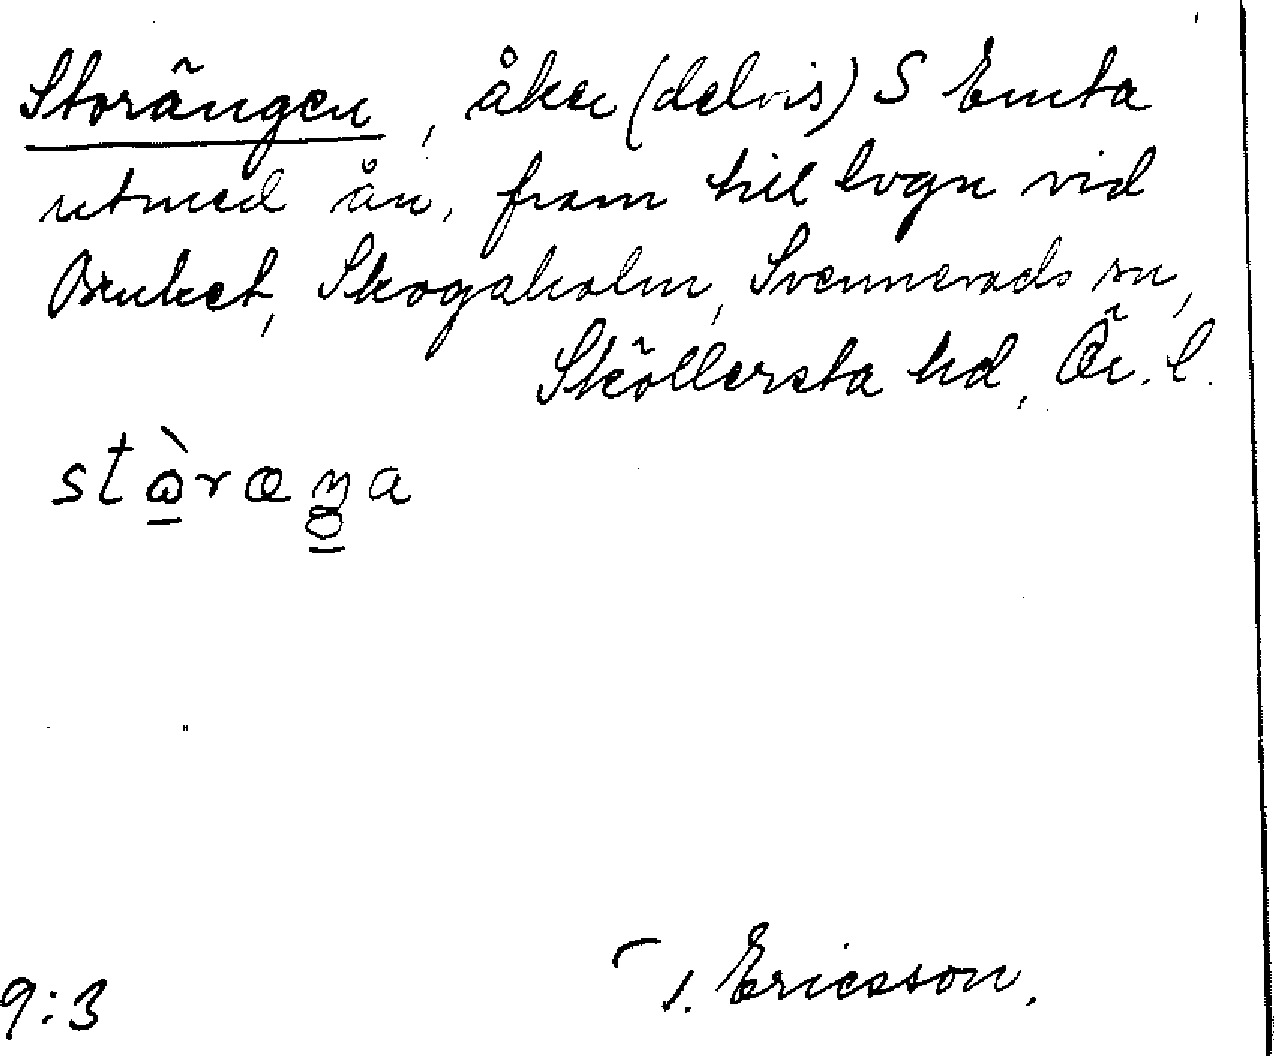 Storängen, åker (delvis) S Emta
utmed ån, fram till logn vid
Bruket, Skogaholm, Svennevads sn,
Sköllersta hd, Ör. l.
9:3
Ericsson.